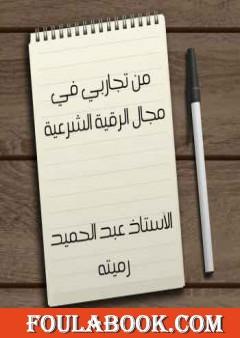 من تجاربي في
مجال الرقية الشرعية
الأستاذ عبد الحميد
رميته
FOULABOOK.COM